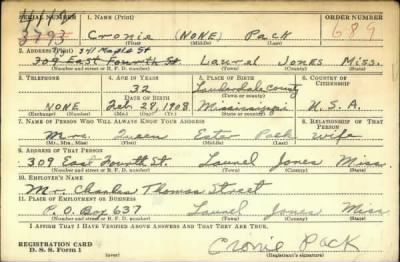 SERIAL NUMBER 1. NAME (Print) ORDER NUMBER
3793 Cronie (NONE) Pack 689
(First) (Middle) (Last)
2. ADDRESS (Print) 341 Maple St
309 East Fourth St. Laurel Jones Miss.
(Number and street or R. F. D. number) (Town) (County) (State)
3. TELEPHONE 4. AGE IN YEARS 5. PLACE OF BIRTH 6. COUNTRY OF CITIZENSHIP
32 Lauderdale County
(Town or county)
DATE OF BIRTH
NONE Feb 28, 1908 Mississippi U.S.A.
(Exchange) (Number) (Mo.) (Day) (Yr.) (State or country)
7. NAME OF PERSON WHO WILL ALWAYS KNOW YOUR ADDRESS 8. RELATIONSHIP OF THAT PERSON
Mrs. Queen Ester Pack wife
(Mr., Mrs., Miss) (First) (Middle) (Last)
9. ADDRESS OF THAT PERSON
309 East Fourth St. Laurel Jones Miss.
(Number and street or R. F. D. number) (Town) (County) (State)
10. EMPLOYER'S NAME
Mr. Charles Thomas Street
11. PLACE OF EMPLOYMENT OR BUSINESS
P.O. Box 637 Laurel Jones Miss
(Number and street or R. F. D. number) (Town) (County) (State)
I AFFIRM THAT I HAVE VERIFIED ABOVE ANSWERS AND THAT THEY ARE TRUE.
REGISTRATION CARD
D. S. S. Form 1 (over) Cronie Pack
(Registrant's signature)